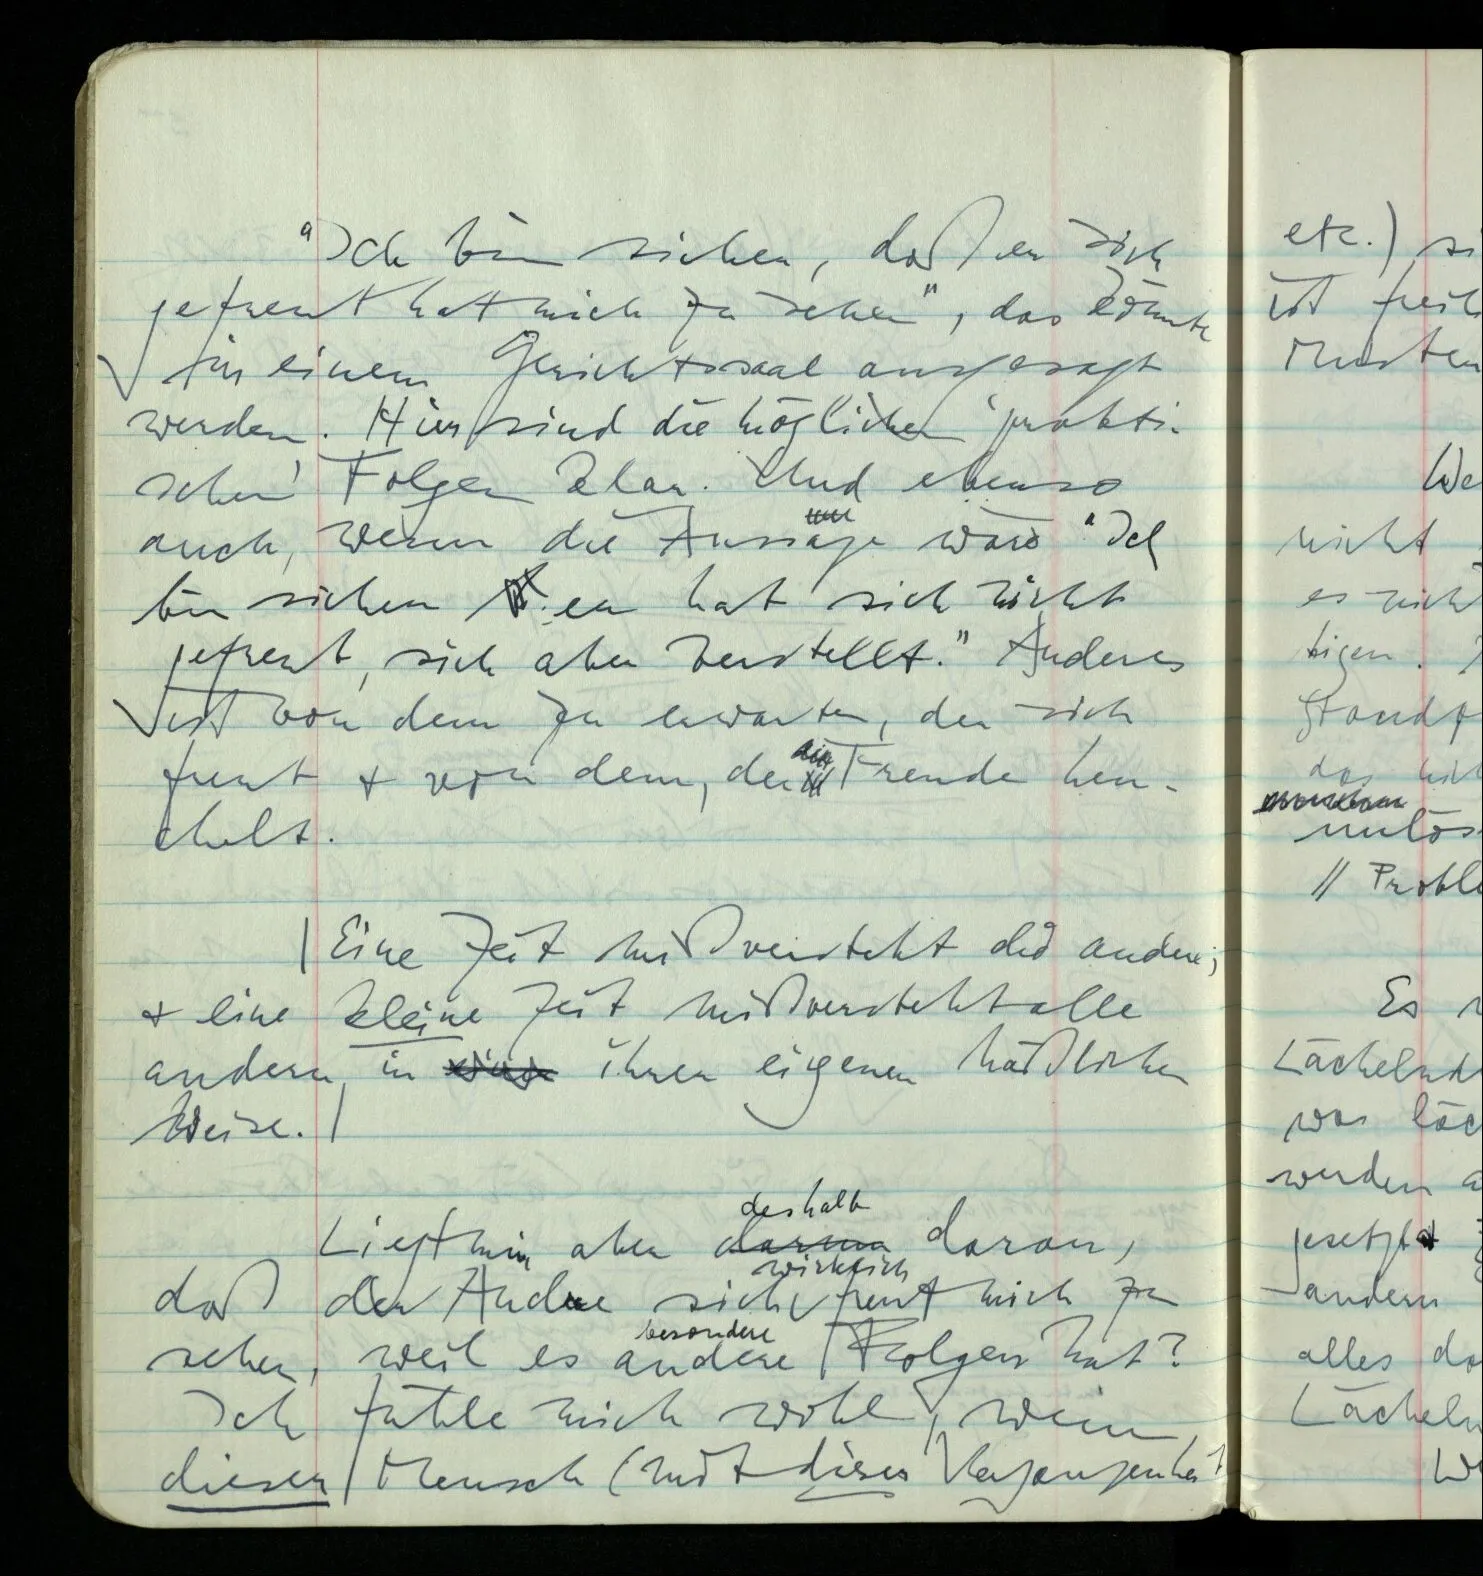 "Ich bin sicher, daß er sich
gefreut hat mich zu sehen", das könnte
in einem Gerichtssaal ausgesagt
werden. Hier sind die möglichen 'prakti-
schen' Folgen klar. Und ebenso
auch, wenn die Aussage wäre "Ich
bin sicher er hat sich nicht
gefreut, sich aber verstellt." Anderes
ist von dem zu erwarten, der sich
freut & von dem, der die Freude heu-
chelt.
| Eine Zeit mißversteht die andere;
& eine kleine Zeit mißversteht alle
andern in ihrer eigenen häßlichen
Weise. |
deshalb
Liegt mir aber darum daran,
wirklich
daß der Andere sich freut mich zu
besondere
sehen, weil es andere Folgen hat?
Ich fühle mich wohl, wenn
dieser Mensch (mit dieser Vergangenheit
etc.)
ist
nicht
es nicht
tigen.
das
// Proble
Es
Lächelnd
was
werden
gesetzt
andern
alles
Lächeln